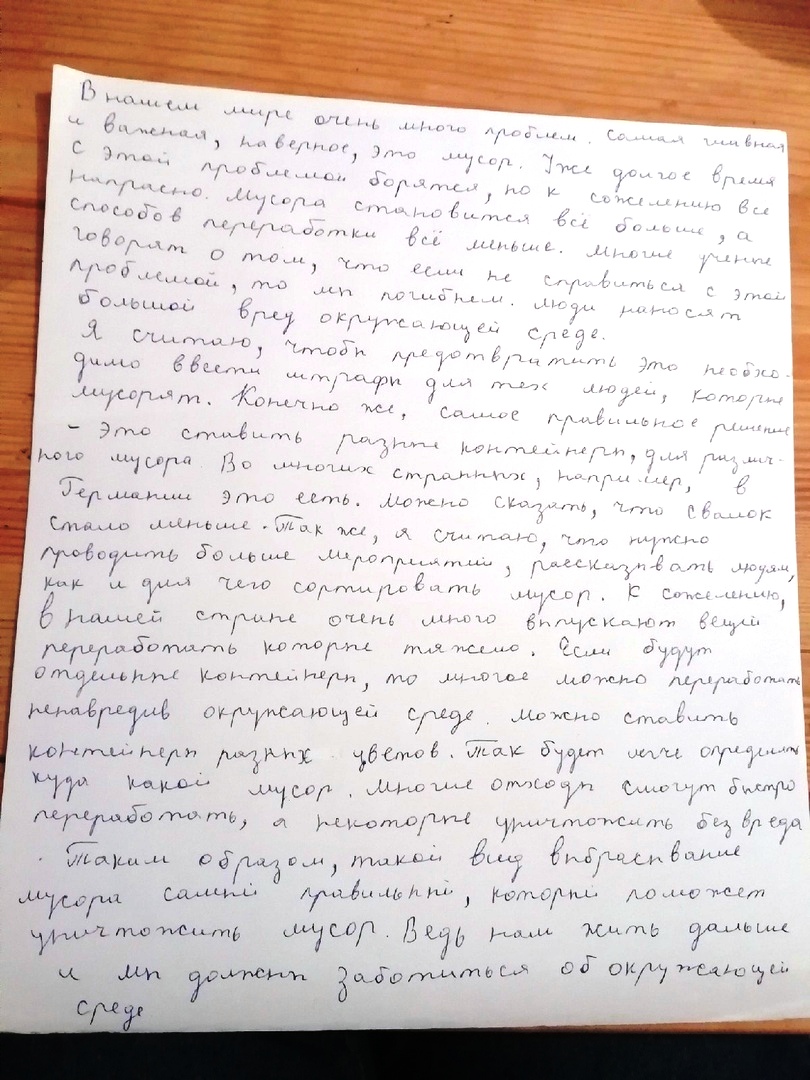 В нашем мире очень много проблем. Самая главная
и важная, наверное, это мусор. Уже долгое время
с этой проблемой борятся, но к сожелению все
напрасно. Мусора становится всё больше, а
способов переработки всё меньше. Многие ученые
говорят о том, что если не справиться с этой
проблемой, то мы погибнем. Люди наносят
большой вред окружающей среде.
Я считаю, чтобы предотвратить это необхо-
димо ввести штрафы для тех людей, которые
мусорят. Конечно же, самое правильное решение
- Это ставить разные контейнеры, для различ-
ного мусора. Во многих странных, например, в
Германии это есть. Можно сказать, что свалок
стало меньше. Так же, я считаю, что нужно
проводить больше мероприятий, рассказывать людям,
как и для чего сортировать мусор. К сожелению,
в нашей стране очень много выпускают вещей
переработать которые тяжело. Если будут
отдельные контейнеры, то многое можно переработать
ненавредив окружающей среде. Можно ставить
контейнеры разных цветов. Так будет легче определить
куда какой мусор. Многие отходы смогут быстро
переработать, а некоторые уничтожить без вреда
. Таким образом, такой вид выбрасывание
мусора самый правильный, который поможет
уничтожить мусор. Ведь нам жить дальше
и мы должны заботиться об окружающей
среде